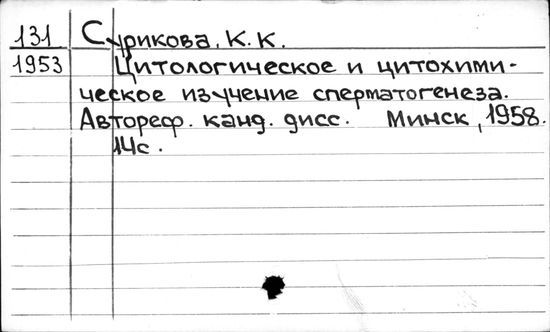 131 Сурикова, К. К.
1953 Цитологическое и цитохими-
ческое изучение сперматогенеза.
Автореф. канд. дисс. Минск, 1958.
14с.